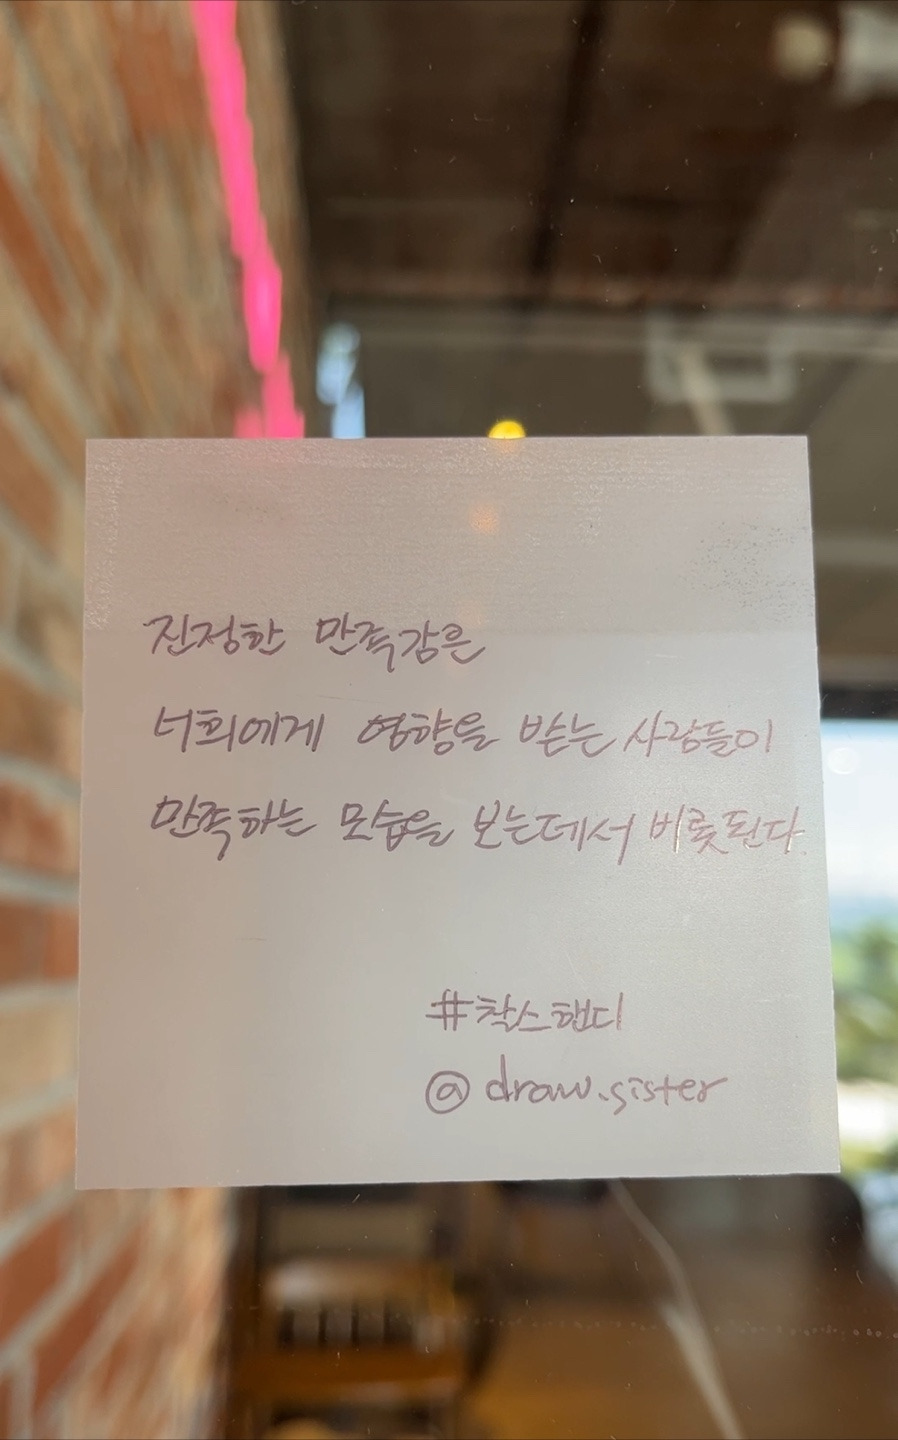 진정한 만족감은
너희에게 영향을 받는 사람들이
만족하는 모습을 보는데서 비롯된다.
#착스핸디
@draw.sister